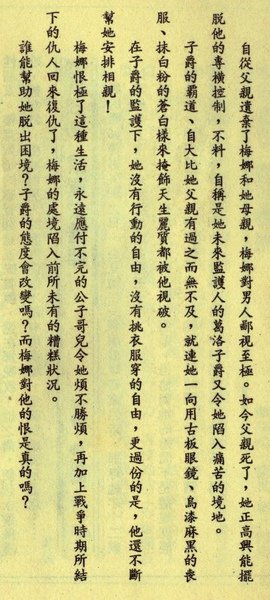 自從父親遺棄了梅娜和她母親，梅娜對男人鄙視至極。如今父親死了，她正高興能擺
脫他的專橫控制，不料，自稱是她未來監護人的葛洛子爵又令她陷入痛苦的境地。
子爵的霸道、自大比她父親有過之而無不及，就連她一向用古板眼鏡、烏漆麻黑的喪
服、抹白粉的蒼白樣來掩飾天生麗質都被他視破。
在子爵的監護下，她沒有行動的自由，沒有挑衣服穿的自由，更過份的是，他還不斷
幫她安排相親！
梅娜恨極了這種生活，永遠應付不完的公子哥兒令她煩不勝煩，再加上戰爭時期所結
下的仇人回來復仇了，梅娜的處境陷入前所未有的糟糕狀況。
誰能幫助她脫出困境？子爵的態度會改變嗎？而梅娜對他的恨是真的嗎？